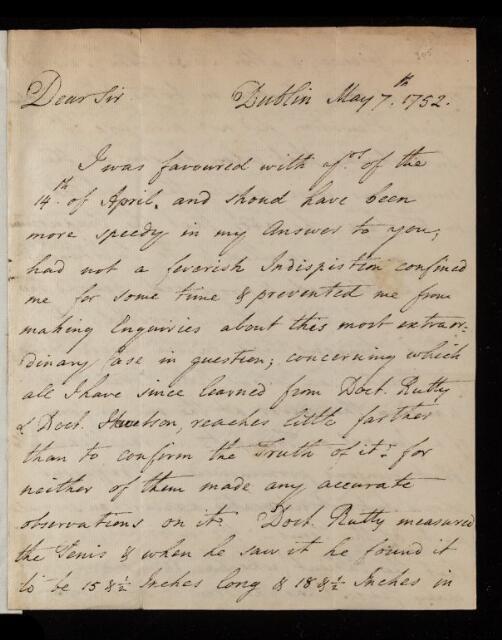 305
Dear Sir Dublin May 7.th 1752.
I was favoured with yrs. of the
14th of April, and shoud have been
more speedy in my Answer to you,
had not a feverish Indispistion confined
me for some time & prevented me from
making Enquiries about this most extraor-
dinary Case in question; concerning which
all I have since learned from Doct. Rutty
& Doct. reaches little farther
than to confirm the Truth of it: for
neither of them made any accurate
observations on it. Doct. Rutty measured
the Penis & when he saw it he found it
to be 15 & ½ Inches long & 18 & ½ Inches in